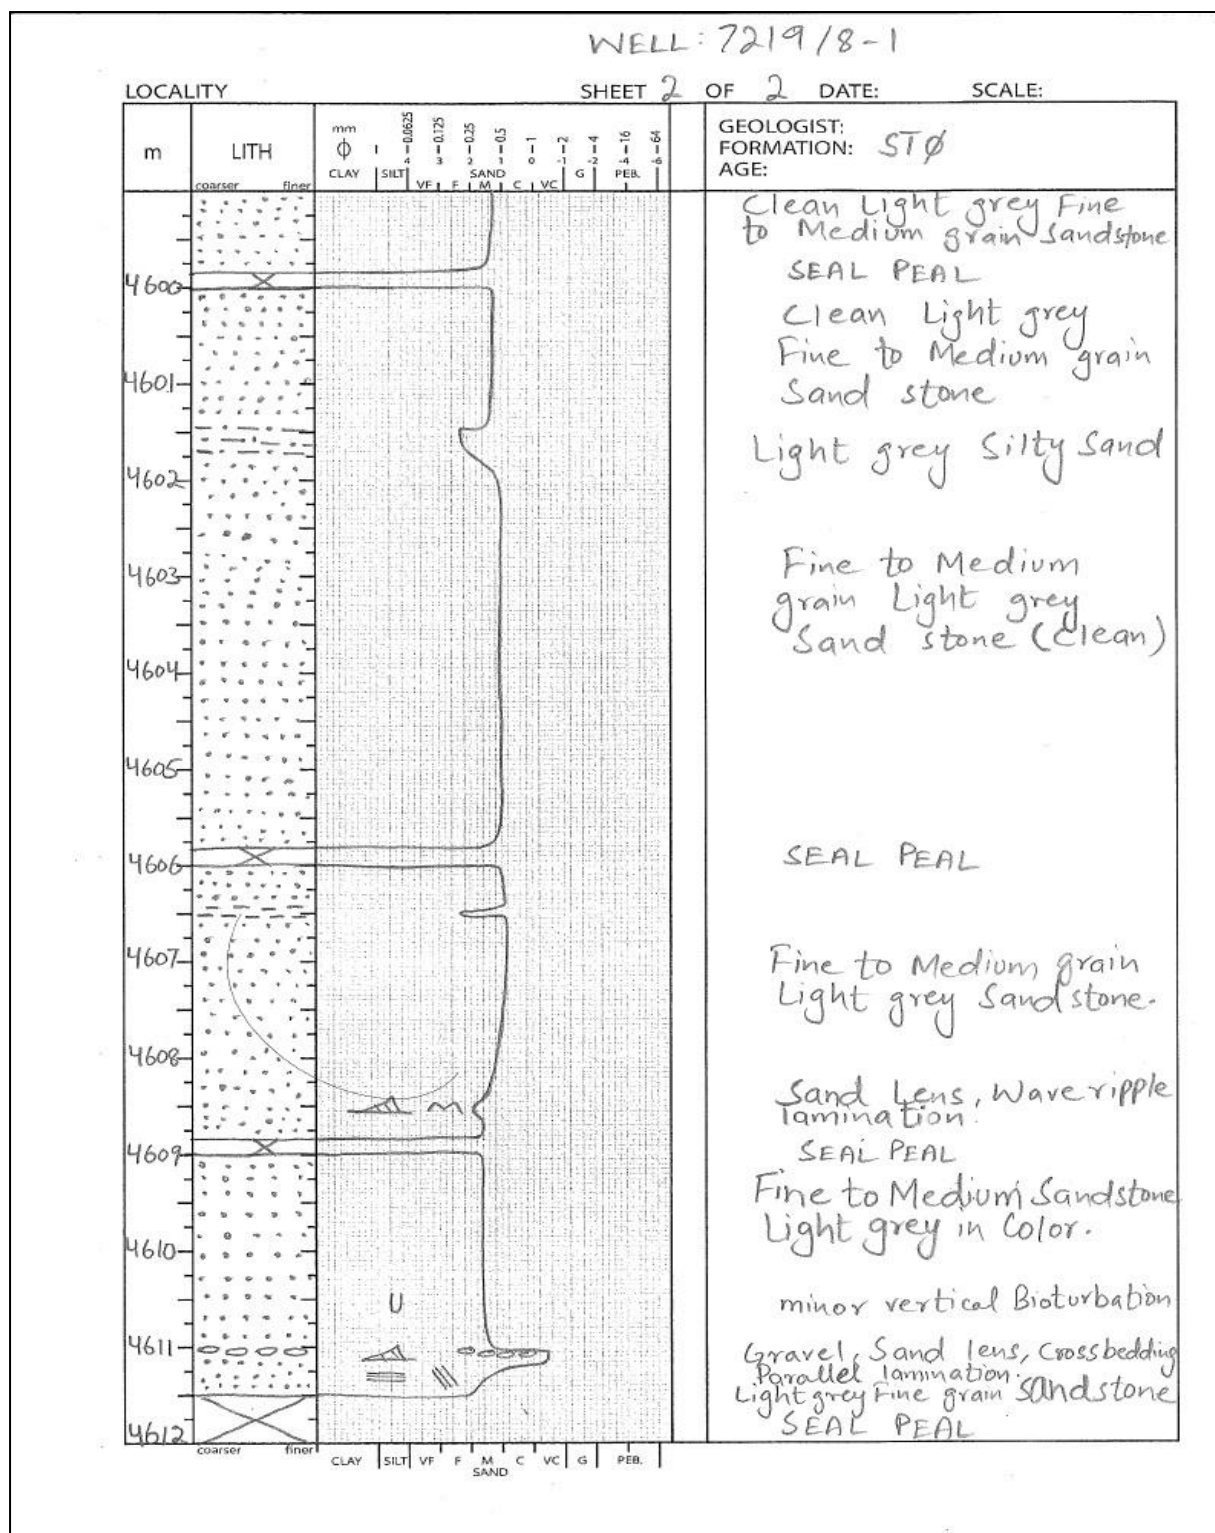 WELL: 7219/8-1
LOCALITY SHEET 2 OF 2 DATE: SCALE:
m LITH coarser finer
mm 0.0625 0.125 0.25 0.5 1 2 4 16 64
ϕ 4 3 2 1 0 -1 -2 -4 -6
CLAY SILT VF F M C VC G PEB.
SAND
GEOLOGIST:
FORMATION: STØ
AGE:
Clean Light grey Fine
to Medium grain Sandstone
SEAL PEAL
4600
Clean Light grey
Fine to Medium grain
4601
Sand stone
Light grey Silty Sand
4602
Fine to Medium
4603
grain Light grey
Sand stone (Clean)
4604
4605
4606
SEAL PEAL
4607
Fine to Medium grain
Light grey Sandstone.
4608
Sand Lens, Wave ripple
lamination.
4609
SEAL PEAL
Fine to Medium Sandstone
Light grey in Color.
4610
U
minor vertical Bioturbation
4611
Gravel, Sand lens, Crossbedding
Parallel lamination.
Light grey Fine grain Sandstone
4612
SEAL PEAL
coarser finer
CLAY SILT VF F M C VC G PEB.
SAND